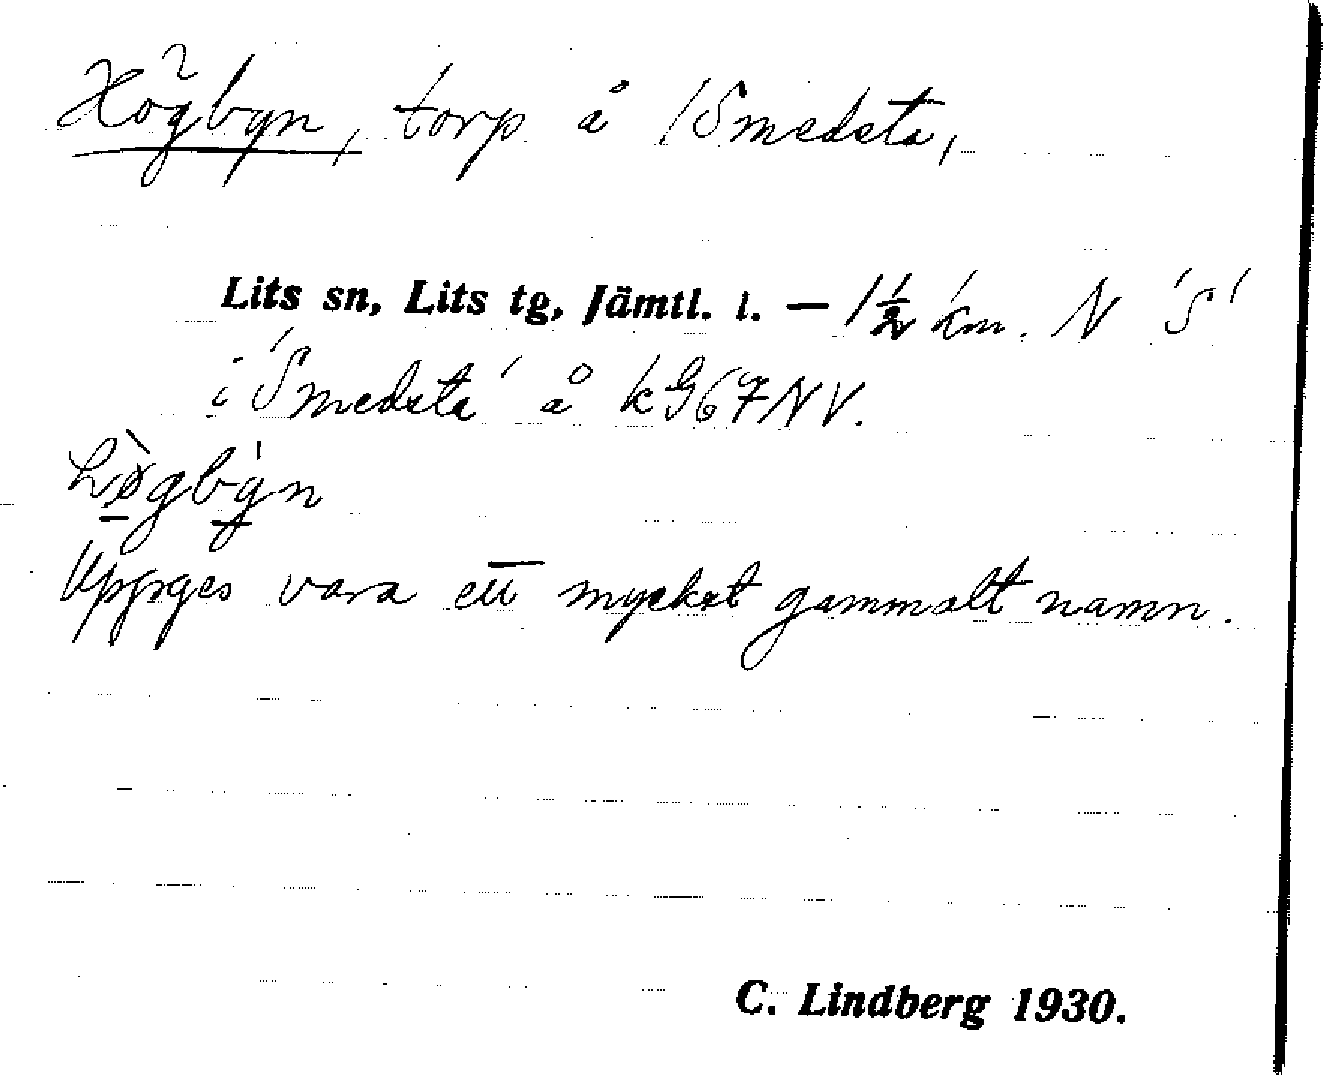 Högbyn, torp å 1 Smedsta,
Lits sn, Lits tg, Jämtl. l. — 1½ km. N 'S'
i 'Smedsta' å kG67NV.
Uppges vara ett mycket gammalt namn.
C. Lindberg 1930.